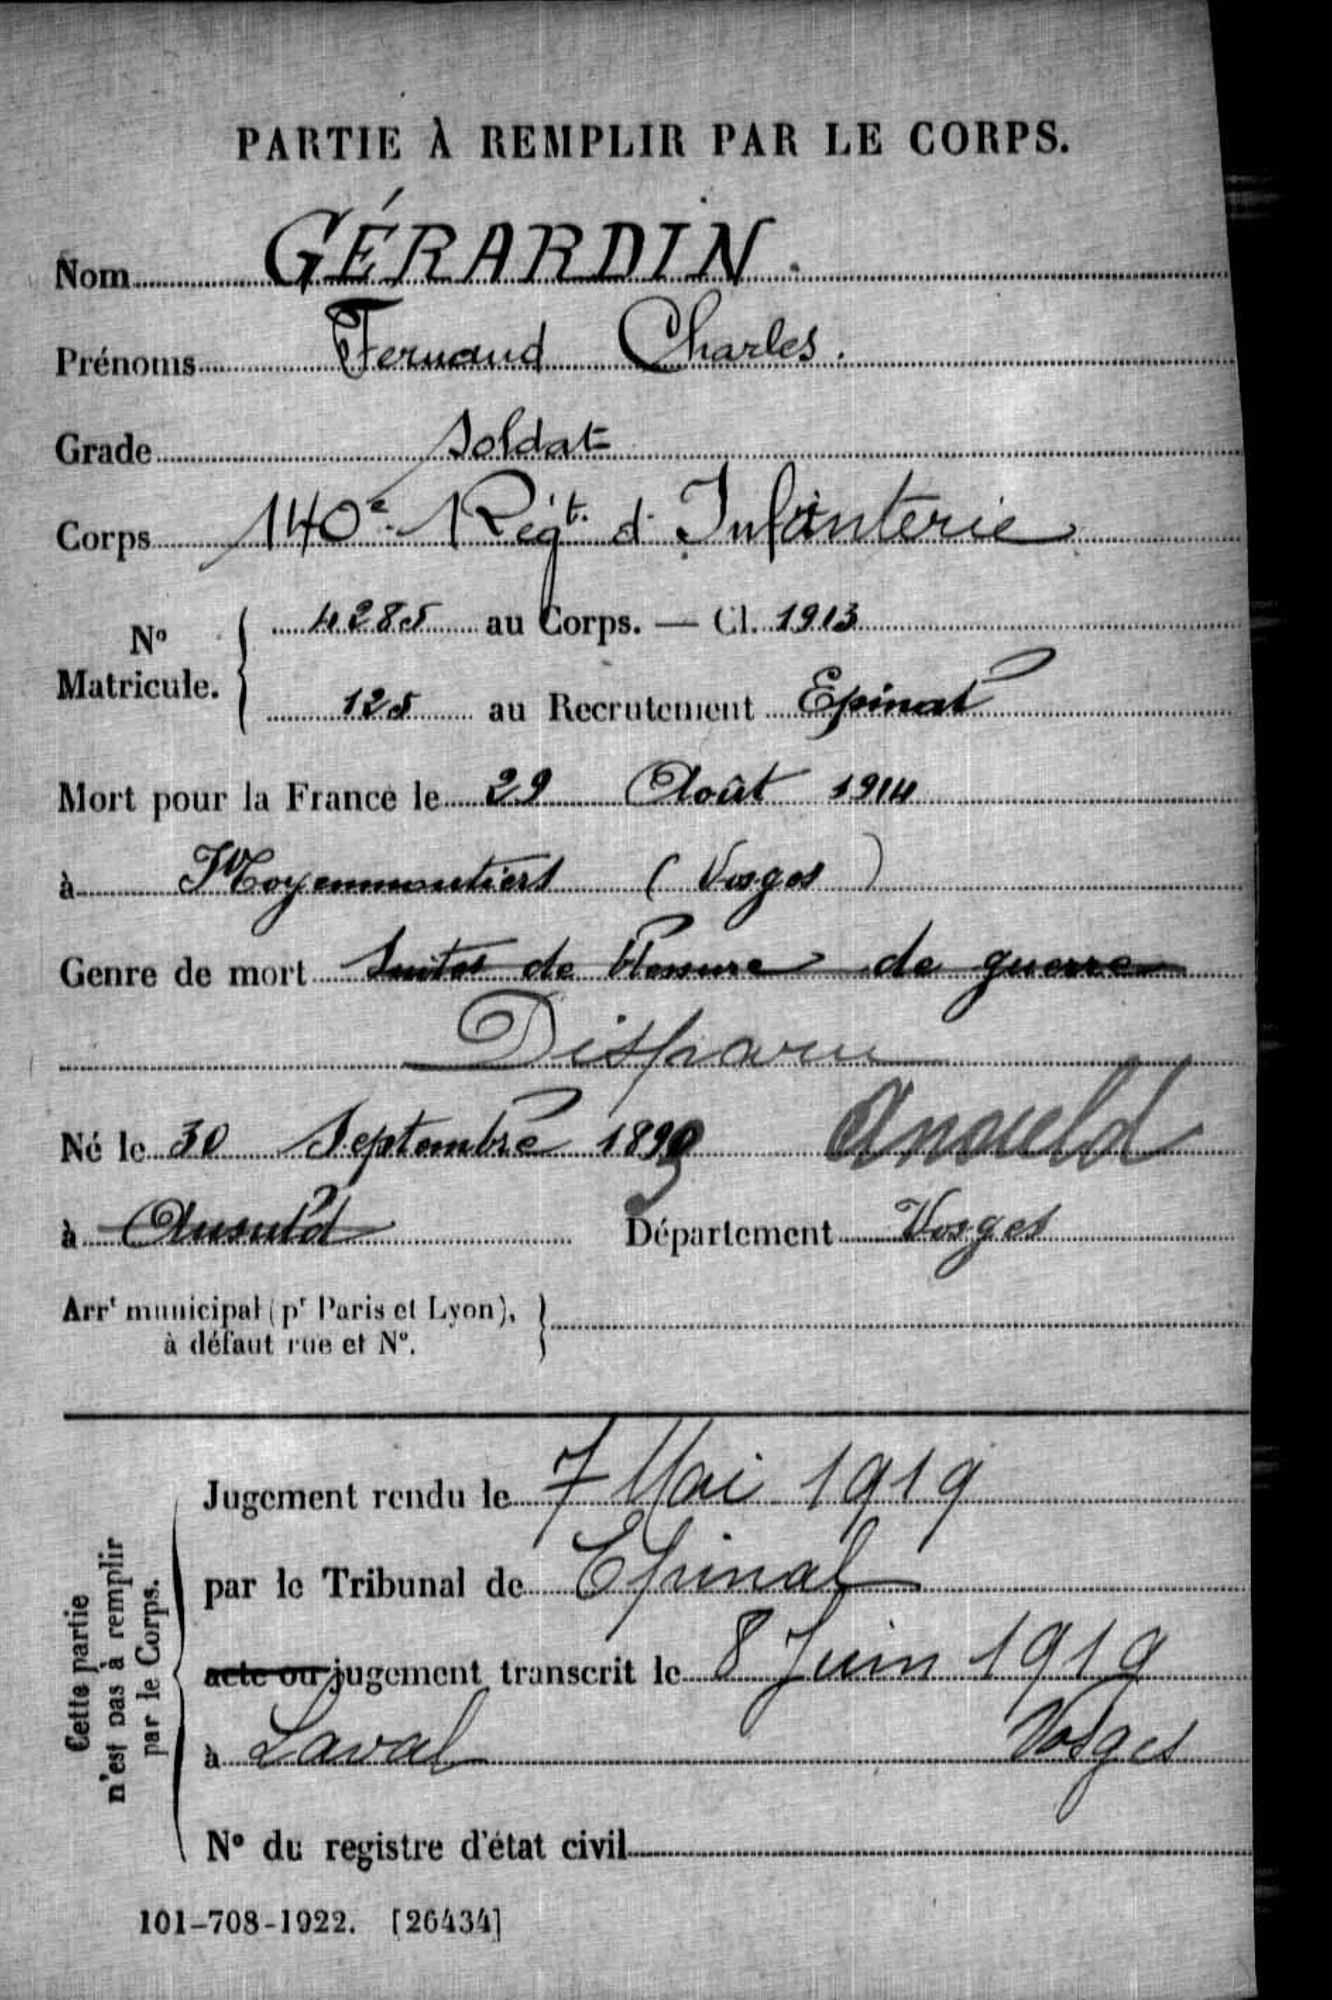 PARTIE À REMPLIR PAR LE CORPS.
Nom GÉRARDIN.
Prénoms Fernand Charles.
Grade Soldat
Corps 140e Régt. d'Infanterie
No Matricule. { 4285 au Corps. — Cl. 1913
125 au Recrutement Epinal
Mort pour la France le 29 Août 1914
à Moyenmoutiers (Vosges)
Genre de mort Suites de blessure de guerre
Disparu
Né le 30 Septembre 1893 Anould
à Anould Département Vosges
Arrt municipal (pr Paris et Lyon), }
à défaut rue et No.
Cette partie
n'est pas à remplir
par le Corps.
Jugement rendu le 7 Mai 1919
par le Tribunal de Epinal
acte ou jugement transcrit le 8 Juin 1919
à Laval Vosges
No du registre d'état civil
101-708-1922. [26434]